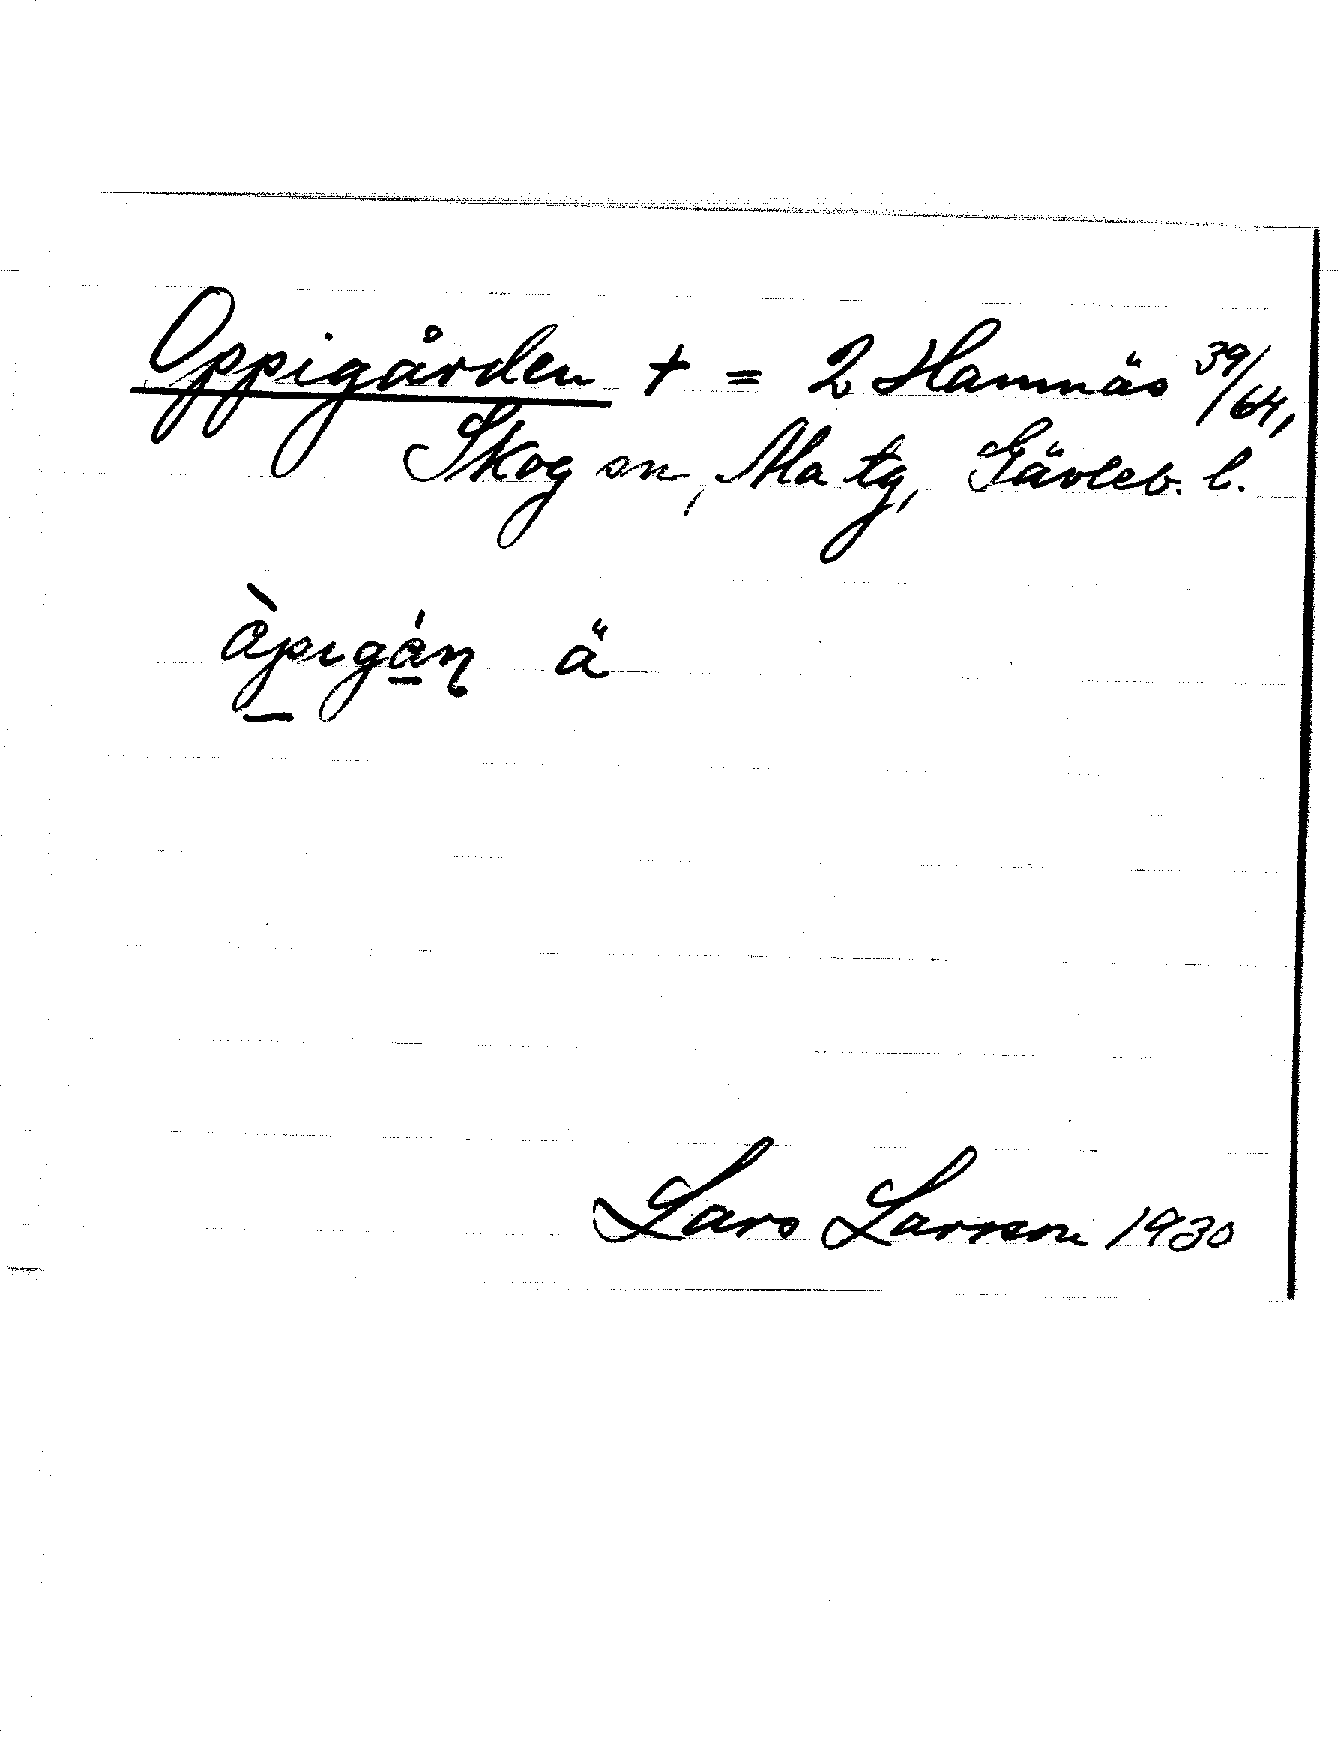 Oppigården + = 2 Hamnäs 39/64,
Skog sn, Ala tg, Gävleb. l.
àpigán ä
Lars Larsson 1930